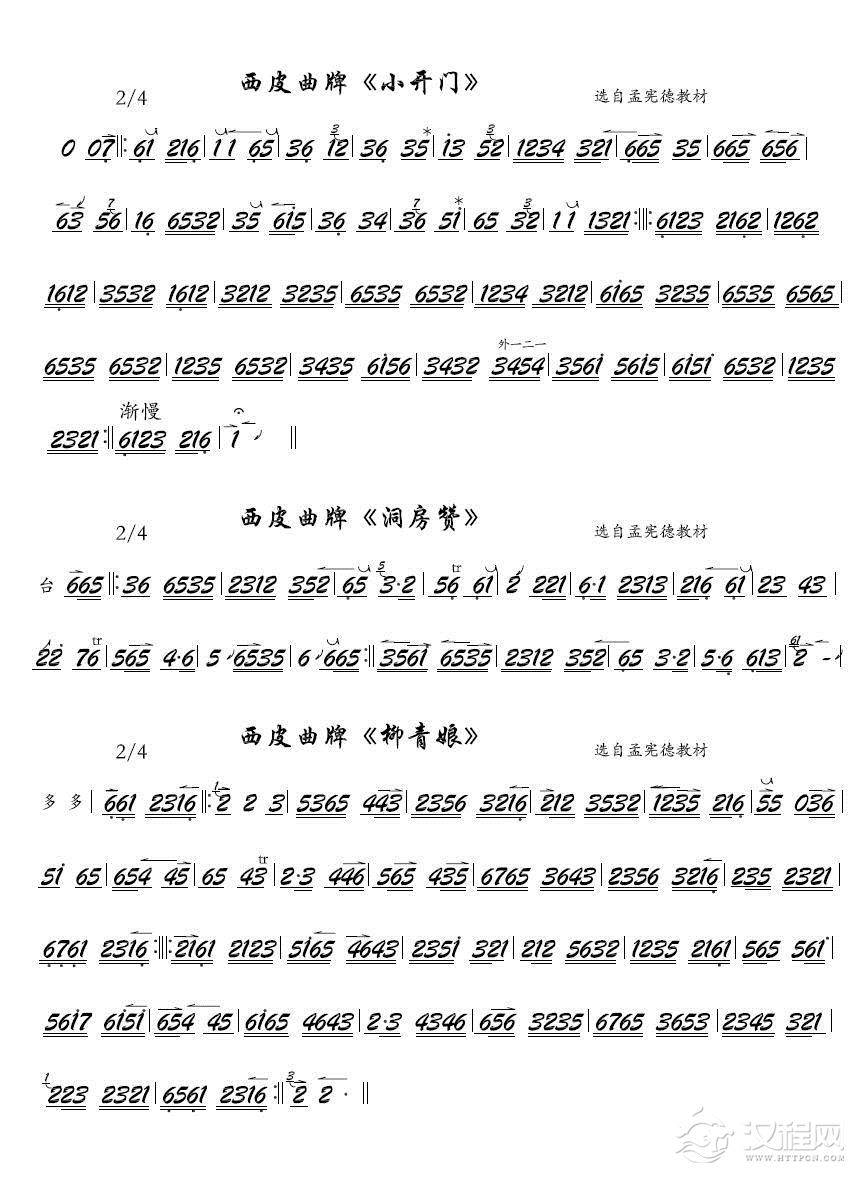 西皮曲牌《小开门》
2/4 选自孟宪德教材
0 07‖:61 216|11 65|36 12|36 35|i3 52|1234 321|665 35|665 656|
63 56|16 6532|35 615|36 34|36 5i|65 32|11 1321:‖:6123 2162|1262
1612|3532 1612|3212 3235|6535 6532|1234 3212|6165 3235|6535 6565|
6535 6532|1235 6532|3435 6156|3432 3454|3561 5615|6151 6532|1235
外一二一
渐慢
2321:‖6123 216|1 ‖
西皮曲牌《洞房赞》
2/4 选自孟宪德教材
台 665‖:36 6535|2312 352|65 3·2|56 61|2 221|6·1 2313|216 61|23 43|
22 76|565 4·6|5 6535|6 665:‖3561 6535|2312 352|65 3·2|5·6 613|2 -
西皮曲牌《柳青娘》
2/4 选自孟宪德教材
多 多|661 2316‖:2 2 3|5365 443|2356 3216|212 3532|1235 216|55 036|
5i 65|654 45|65 43|2·3 446|565 435|6765 3643|2356 3216|235 2321|
6761 2316:‖:2161 2123|5165 4643|2351 321|212 5632|1235 2161|565 561|
5617 6151|654 45|6165 4643|2·3 4346|656 3235|6765 3653|2345 321|
223 2321|6561 2316:‖2 2 ·‖
汉程网
WWW.HTTPCN.COM